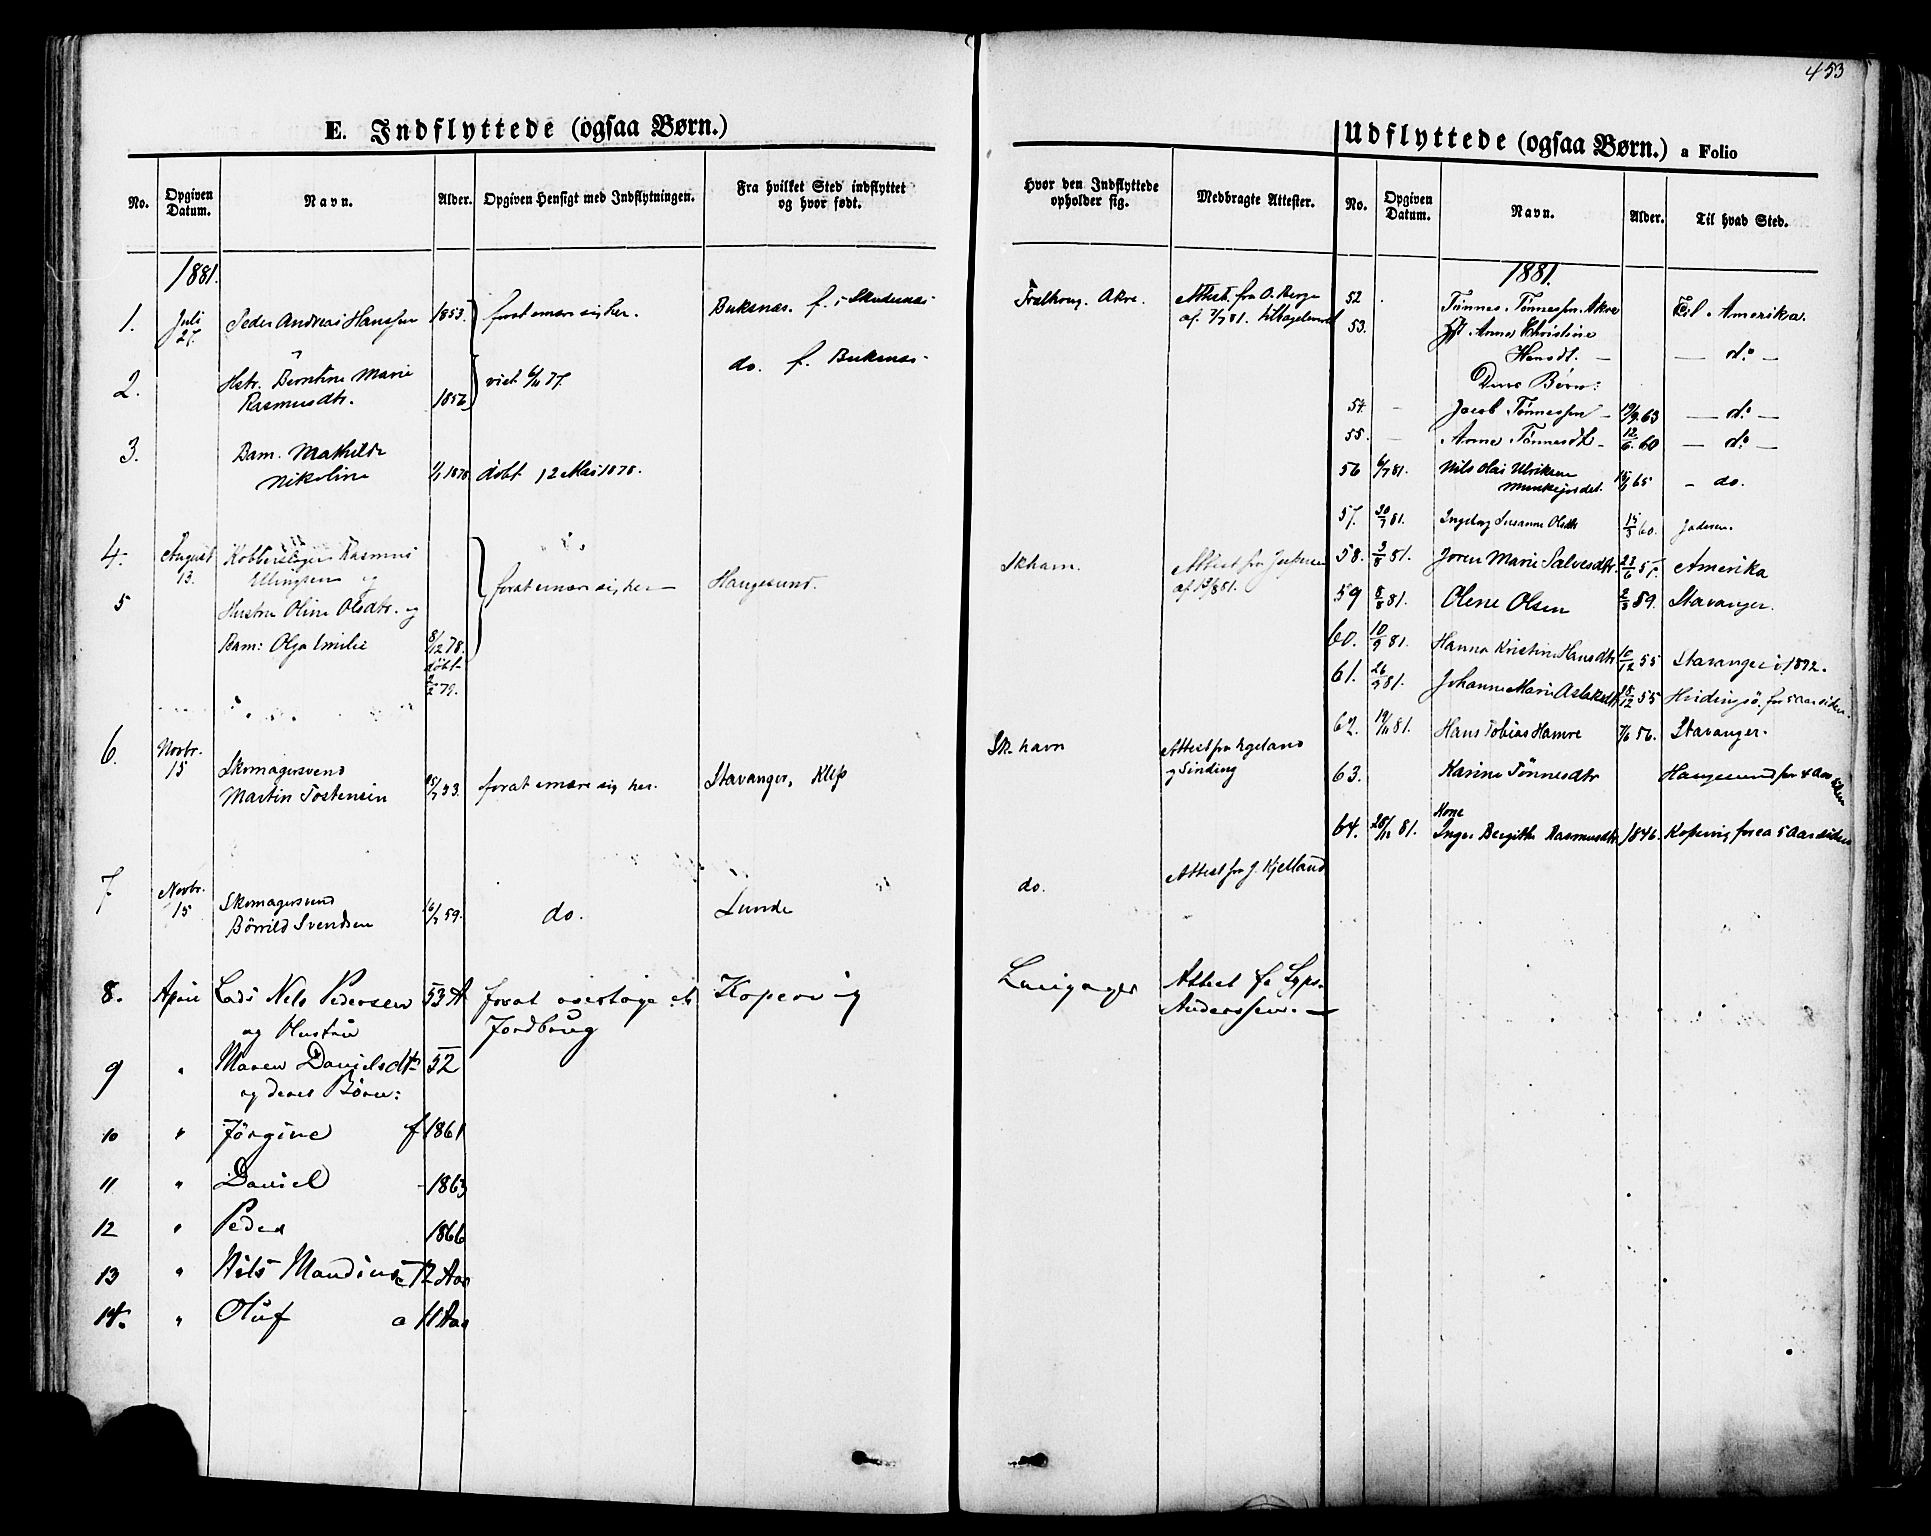 453
E. Indflyttede (ogsaa Børn.)
No. Opgiven Datum. Navn. Alder. Opgiven Hensigt med Indflytningen. Fra hvilket Sted indflyttet og hvor født.
Hvor den Indflyttede opholder sig. Medbragte Attester.
1881.
1. Juli 27. Peder Andreas Hanssen 1853. forat ernære sig her. Buksnæs. f. i Skudenæs
Attest. fra O. Berge
af 7/7 81.
2. " Hstr. Berntine Marie
Rasmusdtr. 1856 viet 6/11 77. do. f. Buksnæs
3. Barn. Mathilde
Nikoline 1/1 1878 døbt 12 Mai 1878.
4. August 13. Kobberslager Rasmus
Ellingsen og forat ernære sig her Haugesund. Sk.havn.
5 Hustru Oline Olsdtr. og
Barn: Olga Emilie 8/12 78.
døbt
2/2 79.
6. Novbr. 15 Skomagersvend
Martin Tostensen 53. forat ernære sig her. Stavanger, Klep Sk. havn Attest fra Egeland
og Sinding
7 Novbr. 15 Skomagersvend
Børrild Svendsen 16/7 59. do. Lunde do. Attest fra J. Kjelland
8. April Lods Nels Pedersen 53 A forat overtage et Kopervig Attest fr
og Hustru Jordbrug Anderssen. —
9 " Maren Danielsdtr 52
og deres Børn:
10 " Jørgine f 1861
11 " Daniel - 1863
12 " Peder 1866
13 " Nils Mandius 12 Aar
14. " Oluf a 11 Aar
Udflyttede (ogsaa Børn.) a Folio
No. Opgiven Datum. Navn. Alder. Til hvad Sted.
1881.
52 Tønnes Tønnessen Akre Til Amerika.
53. Hst Anne Christine
Hansdt. — — do —
Deres Børn:
54. — Jacob Tønnessen — 19/9 63 — do —
55. — Anne Tønnesdt — 12/6 60 — do —
56 6/7 81. Nils Olai Ulriksen
Munkejordet. 65 - do.
57. 30/7 81. Ingeborg Susanne Olsdtr 15/3 60. Jæderen.
58. 3/8 81. Joren Marie Salvesdtr. 23/6 57. Amerika
59 8/8 81. Olene Olsen 2/3 59. Stavanger.
60. 10/9 81. Hanna Kristine Hansdtr 10/12 55 Stavanger i 1892.
61. 26/9 81. Johanne Marie Aslaksdtr 18/12 55 Hvidingsø. for 5 Aar siden.
62. 19/11 81. Hans Tobias Hamre 7/6 56. Stavanger.
63. Karine Tønnesdtr Haugesund for 4 Aar siden
64. 28/12 81. Kone
Inger Bergithe Rasmusdtr 1846. Kopervig for ca 5 Aar siden